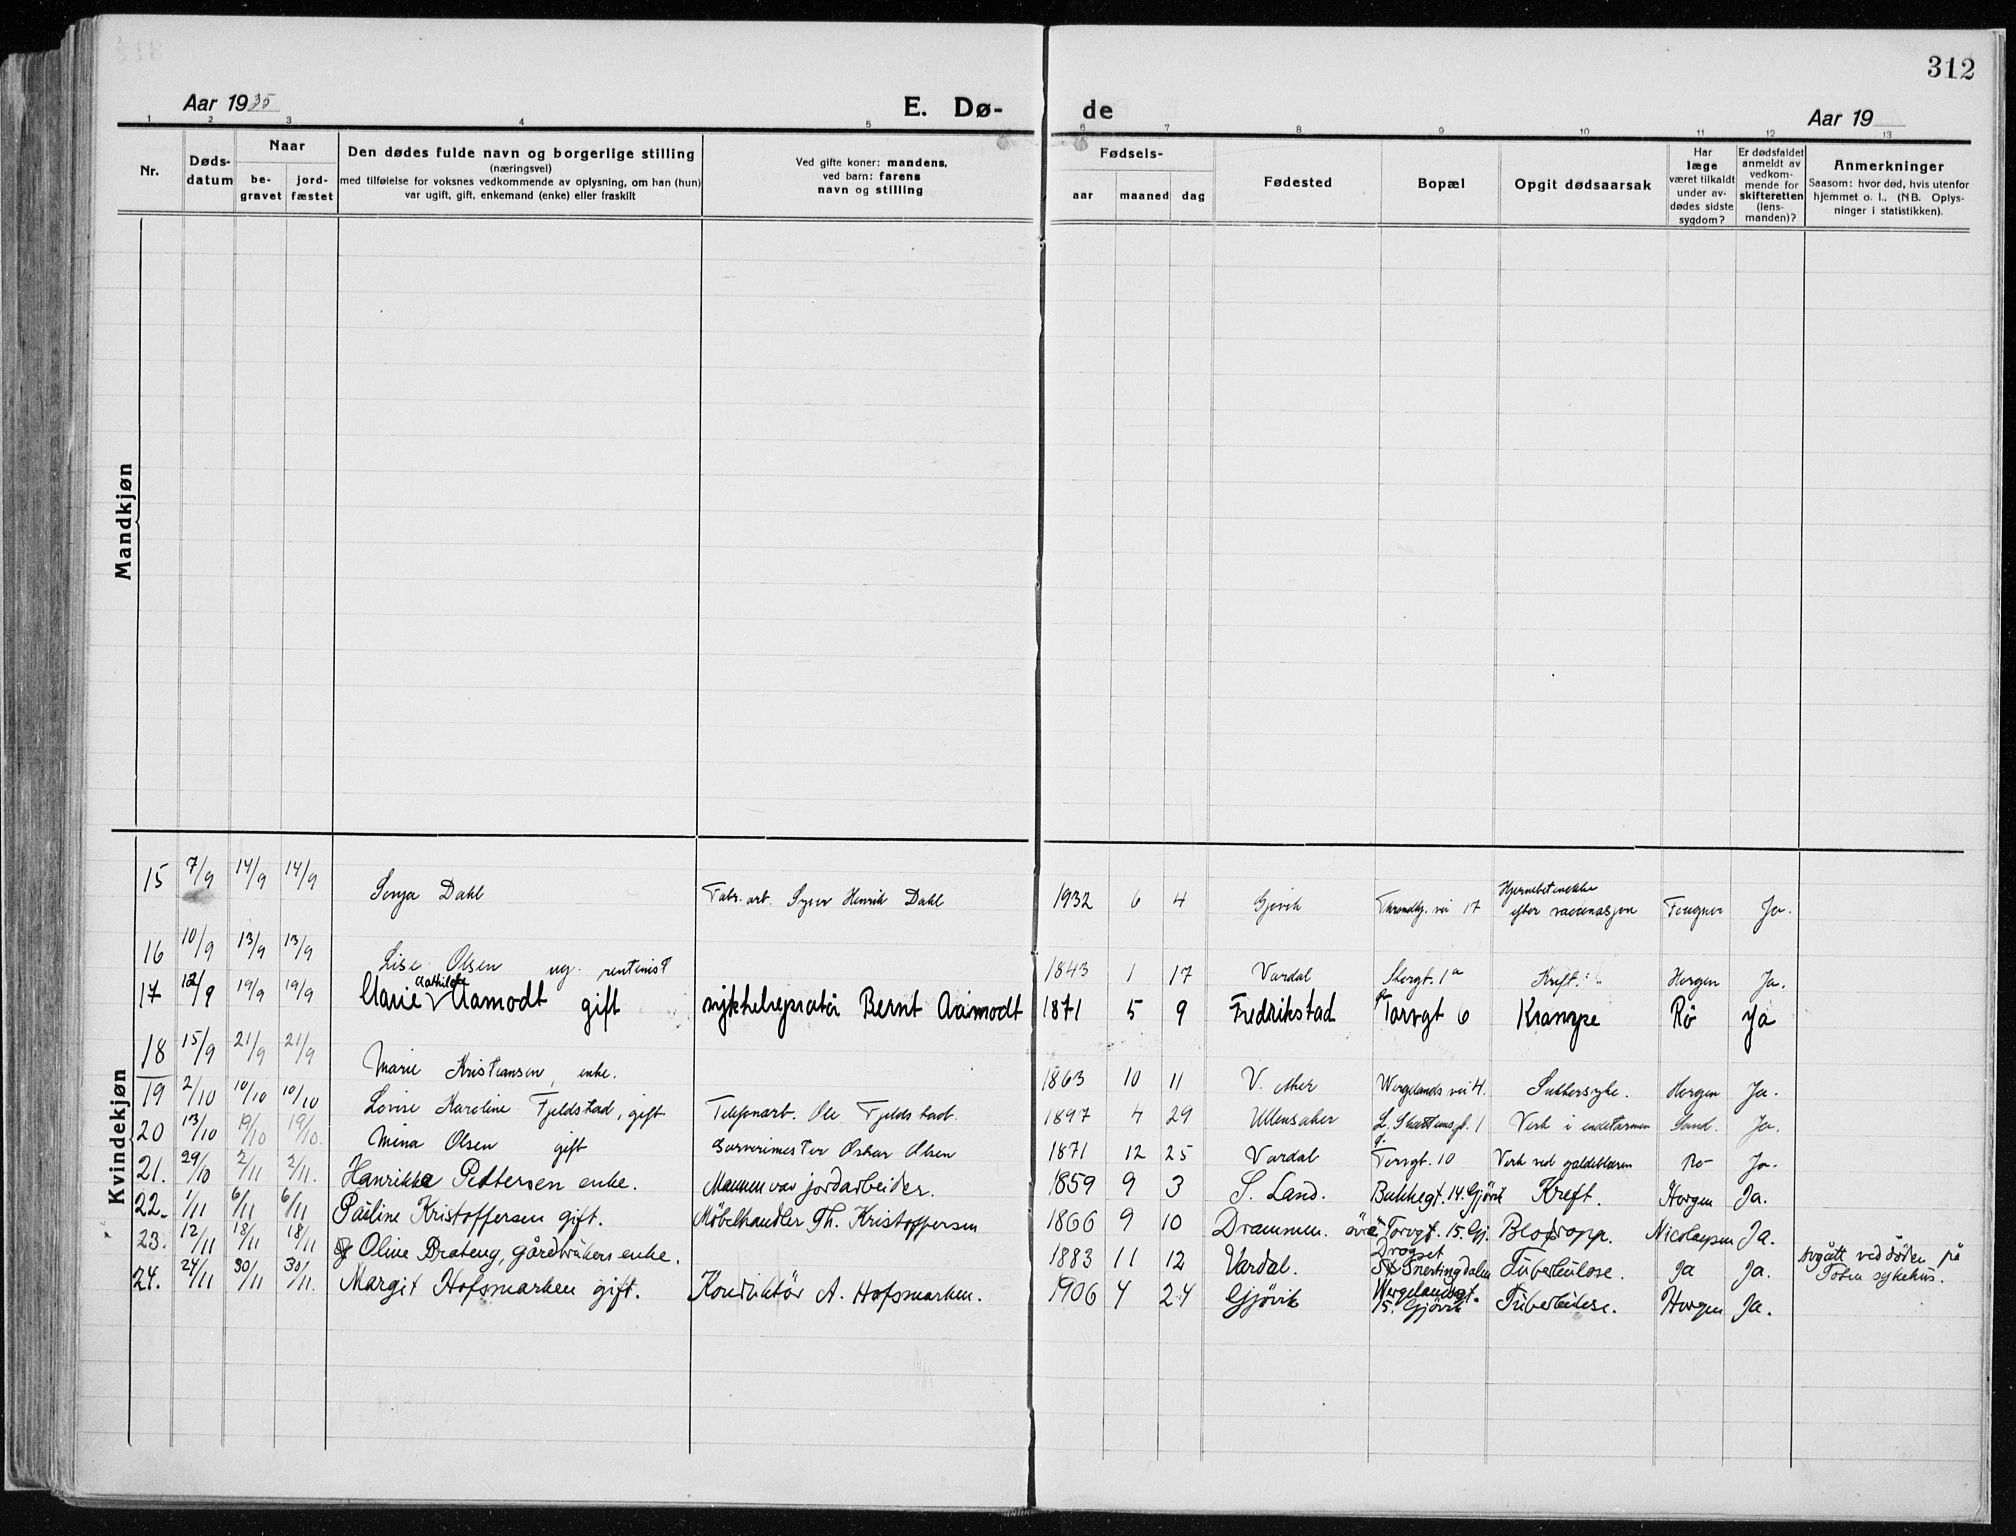 312
Aar 1935
E. Dø-
de
Aar 19
1 2 3 4 5 6 7 8 9 10 11 12 13
Nr.
Døds-
datum
Naar
be-
gravet
jord-
fæstet
Den dødes fulde navn og borgerlige stilling
(næringsvei)
med tilføielse for voksnes vedkommende av oplysning, om han (hun)
var ugift, gift, enkemand (enke) eller fraskilt
Ved gifte koner: mandens,
ved barn: farens
navn og stilling
Fødsels-
aar maaned dag
Fødested
Bopæl
Opgit dødsaarsak
Har
læge
været tilkaldt
under av-
dødes sidste
sygdom?
Er dødsfaldet
anmeldt av
vedkom-
mende for
skifteretten
(lens-
manden)?
Anmerkninger
Saasom: hvor død, hvis utenfor
hjemmet o. l.. (NB. Oplys-
ninger i statistikken).
Mandkjøn
Kvindekjøn
15 7/9 14/9 14/9 Sonja Dahl Fabr. arb. Henrik Dahl 1932 6 4 Gjøvik Trondhj. vei 17 Hjernebetennelse
efter vaccinasjon Fougner Ja.
16 10/9 13/9 13/9 Lise Olsen ug. rentenist 1843 1 17 Vardal Storgt. 1a Kreft Horgen Ja.
17 12/9 19/9 19/9 Marie Mathilde Aamodt gift Bernt Aamodt 1871 5 9 Fredrikstad Torvgt 6 Krampe Rö Ja
18 15/9 21/9 21/9 Marie Kristiansen, enke. 1863 10 11 V. Aker Wergelands vei 4. Sukkersyke. Horgen Ja.
19 2/10 10/10 10/10 Lovise Karoline Fjeldstad, gift Telefonarb. Ole Fjeldstad. 1897 4 29 Ullensaker L. Skattumsgt. 1 Verk i endetarmen Sand. Ja.
20 13/10 19/10 19/10. Mina Olsen gift Garverimester Oskar Olsen 1871 12 25 Vardal Torvgt. 10 Verk ved galdeblæren Rö Ja.
21. 29/10 2/11 2/11. Henrikke Pettersen enke. Mannen var jordarbeider. 1859 9 3 S. Land. Bakkegt. 14. Gjövik Kreft. Horgen Ja.
22. 1/11 6/11 6/11 Pauline Kristoffersen gift. Møbelhandler Th. Kristoffersen 1866 9 10 Drammen. övre Torvgt. 15. Gj. Blodpropp. Nicolaysen Ja.
23. 12/11 18/11 18/11 Oline Brateng, gårdbrukers enke. 1883 11 12 Vardal. Drogset
Snertingdalen Tuberkulose. Ja Ja. Avgått ved döden på
Toten sykehus.
24. 24/11 30/11 30/11. Margit Hofsmarken gift. Konduktör A. Hofsmarken. 1906 4 24 Gjövik Wergelandsgt.
15. Gjövik Tuberkulose. Horgen Ja.